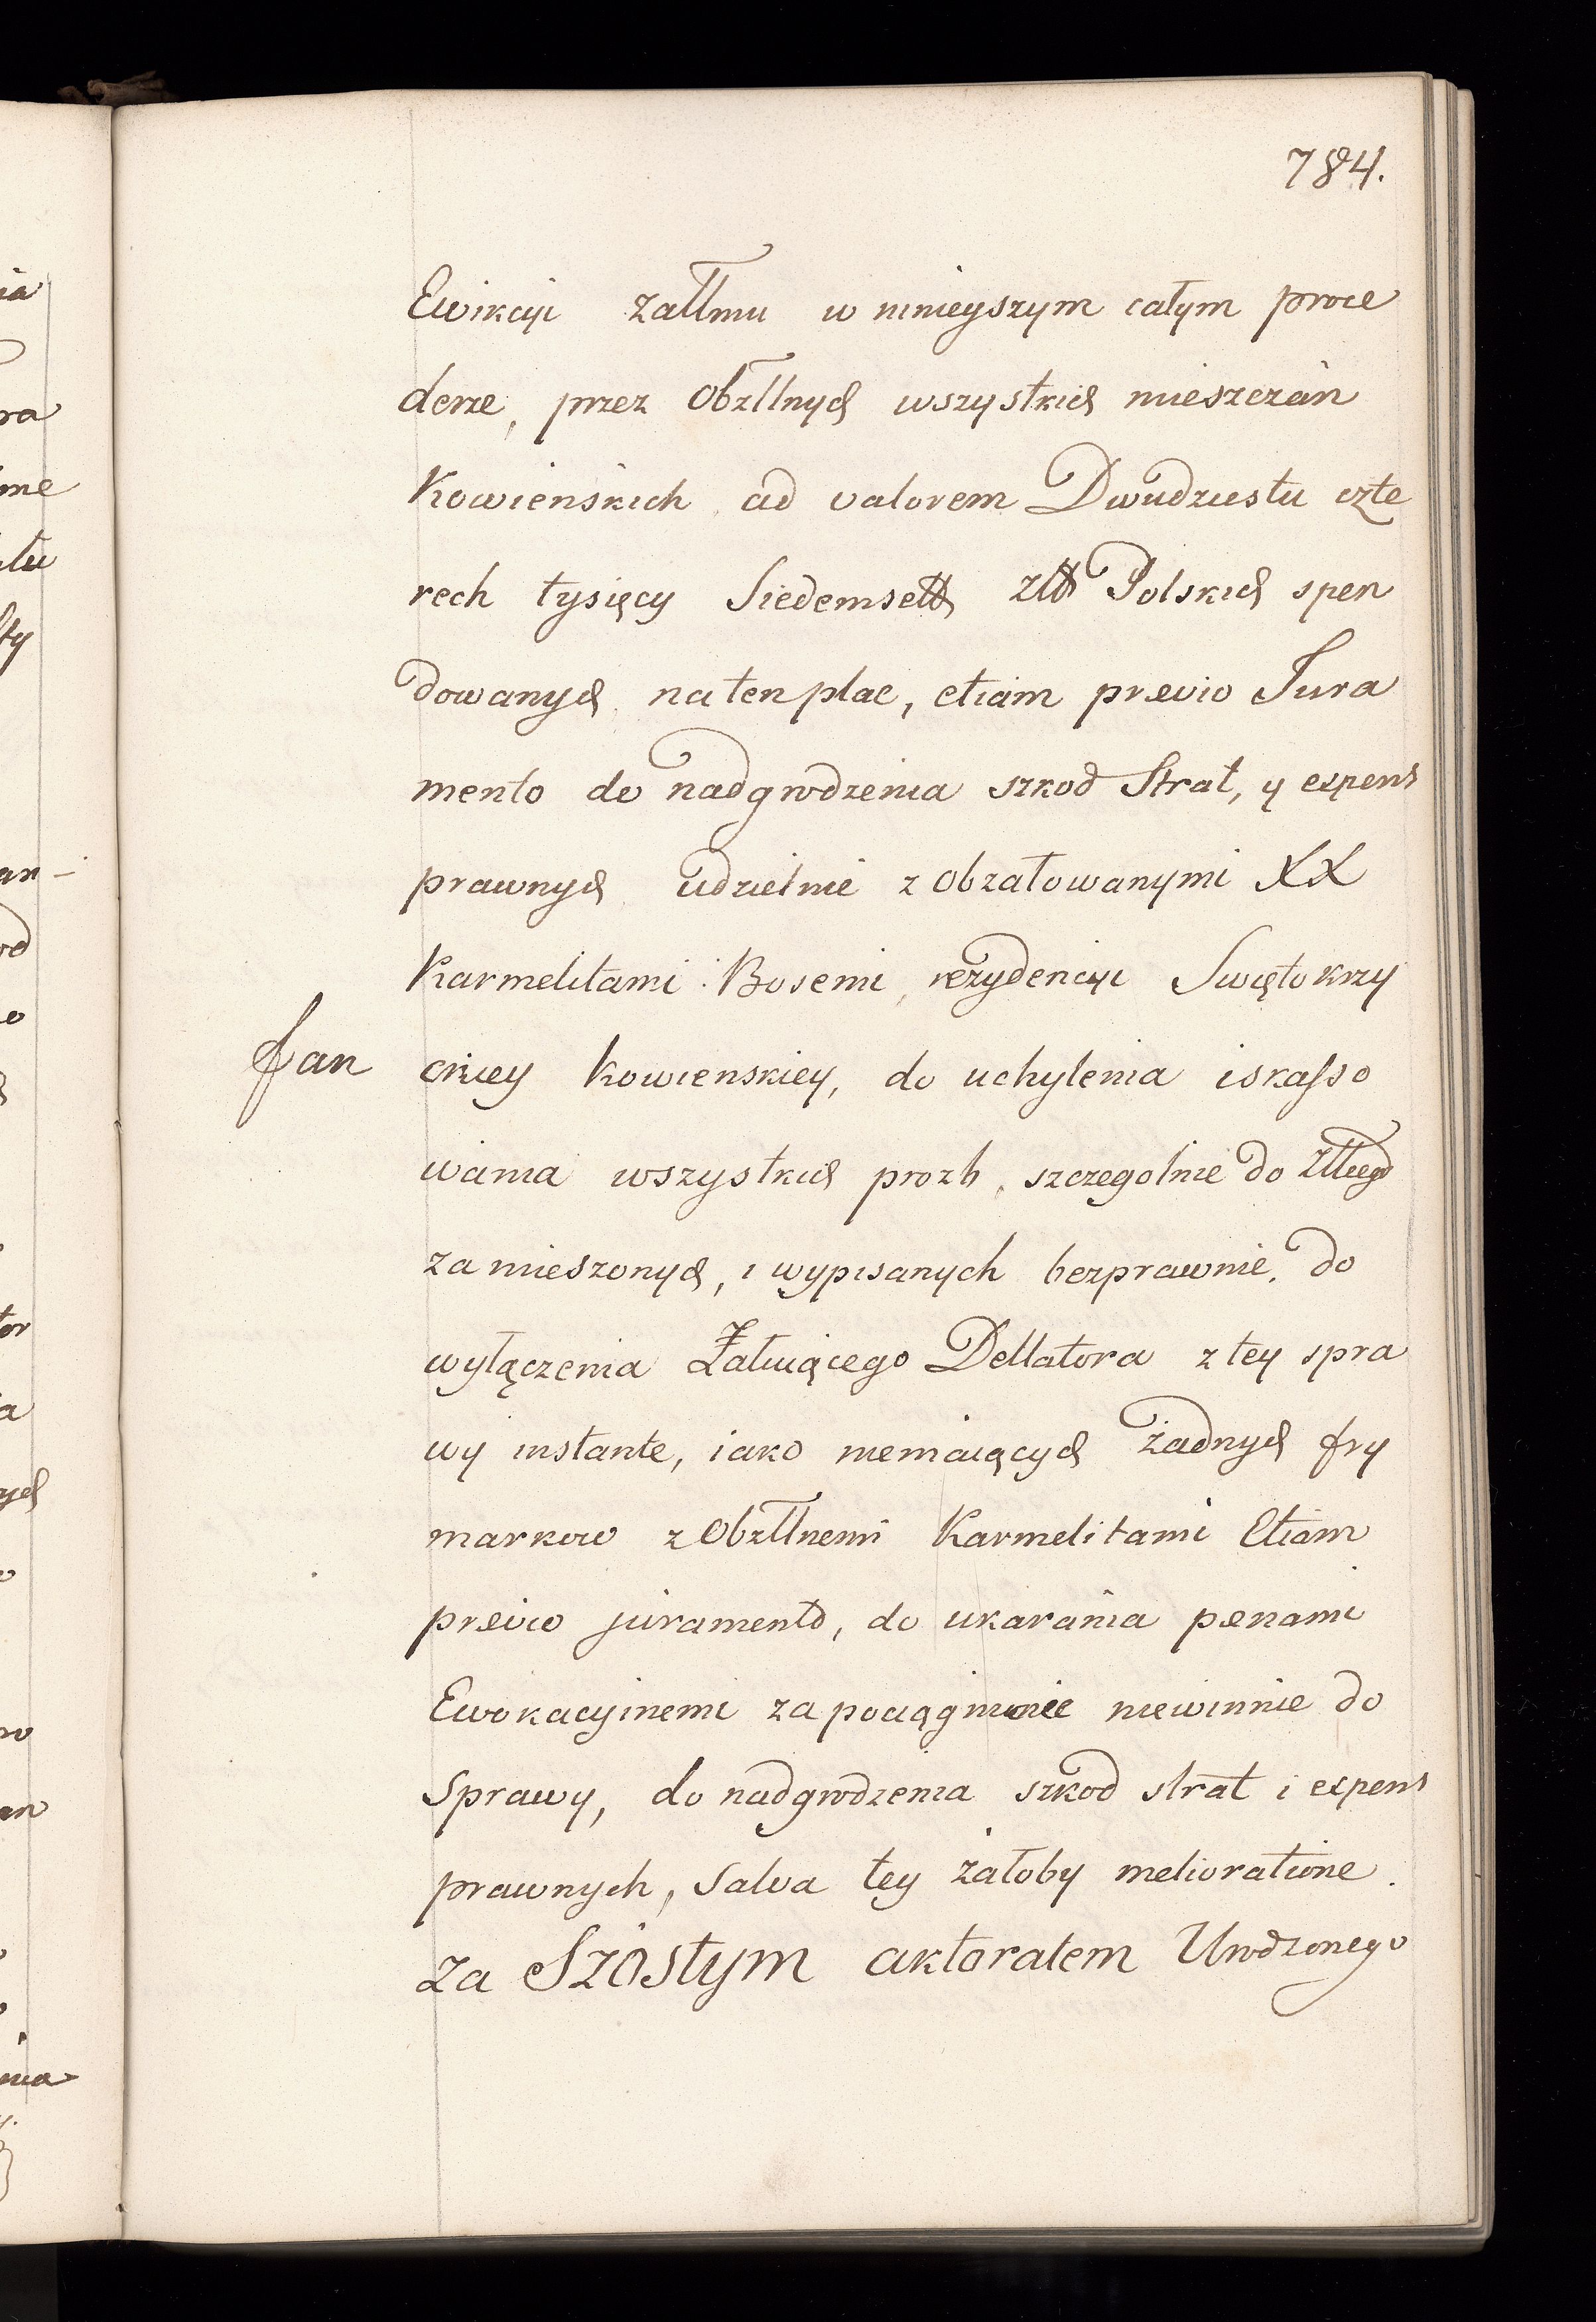 784.
Ewikcyi żałłmu w ninieyszym całym proce
derze, przez Obżłłnych wszystkich mieszczan
Kowienskich ad valorem Dwudziestu czte
rech tysięcy Siedemseth złł Polskich spen
dowanych na ten plac, etiam prævio Jura
mento do nadgrodzenia szkod Strat, y expens
prawnych udzielnie z obżałowanymi XX
Karmelitami Bosemi, rezydencyi Swiętokrzy
fan
ckiey Kowienskiey, do uchylenia i skasso
wania wszystkich prozb, szczegolnie do
zamieszonych, i wypisanych bezprawnie, do
wyłączenia Żałuiącego Dellatora z tey spra
wy instante, iako niemaiących żadnych fry
markow z Obżłłnemi Karmelitami Etiam
prævio juramento, do ukarania pænami
Ewokacyinemi za pociągnienie niewinnie do
sprawy, do nadgrodzenia szkod strat i expens
prawnych, Salva tey żałoby melioratione.
Za Szóstym aktoratem Urodzonego
ia
ra
me
łu
ty
an-
od
o
tor
a
ych
no
an
nia